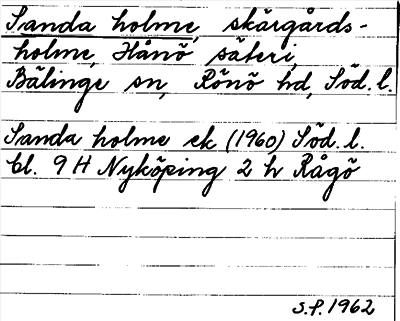 Sanda holme, skärgårds-
holme, Hånö säteri,
Bälinge sn, Rönö hd, Söd. l.
Sanda holme ek (1960) Söd. l.
bl. 9 H Nyköping 2 h Rågö
S.f. 1962